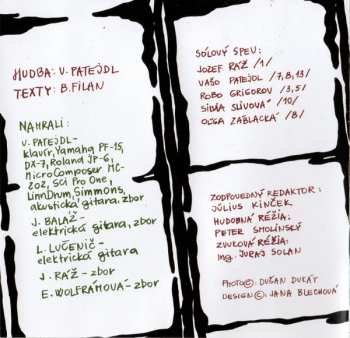 HUDBA: V. PATEJDL
TEXTY: B. FILAN
NAHRALI:
V. PATEJDL-
klavír, Yamaha PF-15,
DX-7, Roland JP-6,
Microcomposer MC-
202, SCI Pro One,
LinnDrum, Simmons,
akustická gitara, zbor
J. BALÁŽ-
elektrická gitara, zbor
L. LUČENIČ-
elektrická gitara
J. RÁŽ-zbor
E. WOLFRÁMOVÁ-zbor
SÓLOVÝ SPEV:
JOZEF RÁŽ /1/
VAŠO PATEJDL /7,8,13/
ROBO GRIGOROV /3,5/
SIBYLA SLÍVOVÁ /10/
OĽGA ZÁBLACKÁ /8/
ZODPOVEDNÝ REDAKTOR:
JÚLIUS KINČEK
HUDOBNÁ RÉŽIA:
PETER SMOLINSKÝ
ZVUKOVÁ RÉŽIA:
Ing. JURAJ SOLAN
PHOTO©: DUŠAN DUKÁT
DESIGN©: JANA BLECHOVÁ